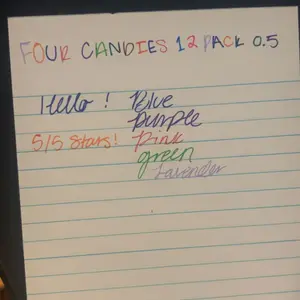 FOUR CANDIES 12 PACK 0.5
Hello! Blue
Purple
5/5 Stars! Pink
green
Lavender